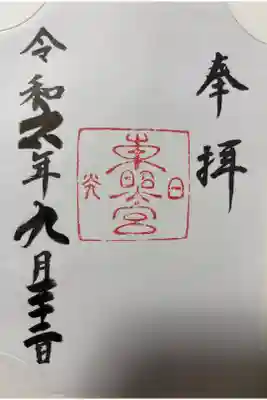 奉拝
日光
東照宮
令和六年九月二十二日